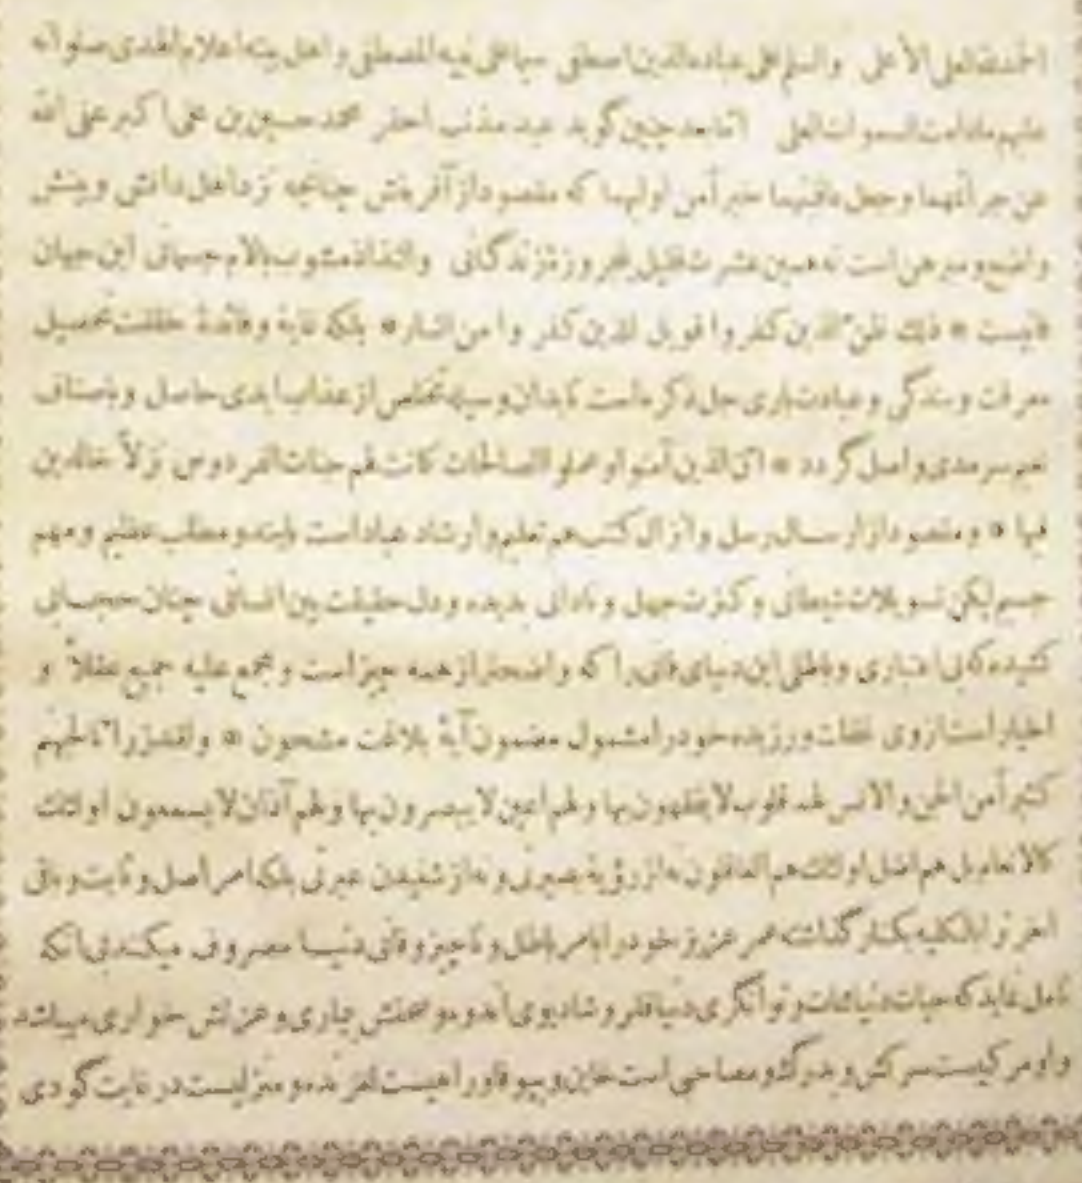 الحمد لله العلی الأعلی والسلام علی عباده الذین اصطفی سیما علی نبیه المصطفی و اهل بیته اعلام الهدی صلواته
علیهم مادامت السموات العلی امّا بعد چنین گوید عبد مذنب احقر محمد حسین بن علی اکبر عفی الله
عن جرائمهما و جعل عاقبتهما خیراً من اولیهما که مقصود از آفرینش چنانچه نزد اهل دانش و بینش
واضح و مبرهن است نه همین عشرت قلیل پنجروزه زندگانی والتذاذ مشوب بآلام جسمانی این جهان
فانیست * ذلک ظنّ الذین کفروا فویل للذین کفروا من النار * بلکه غایه و فائدهٔ خلقت تحصیل
معرفت و بندگی و عبادت باری جل ذکره است تا بدان وسیله تخلص از عذاب ابدی حاصل و باصناف
نعیم سرمدی واصل گردد * انّ الذین آمنوا و عملوا الصالحات کانت لهم جنات الفردوس نزلاً خالدین
فیها * و مقصود از ارسال رسل و انزال کتب هم تعلیم و ارشاد عباد است باینمطلب عظیم و مهم
جسیم لیکن تسویلات شیطانی و کثرت جهل و نادانی بدیده و دل حقیقت بین انسانی چنان حجابی
کشیده که بی اعتباری و باطلی این دنیای فانی را که واضحتر از همه چیز است و مجمع علیه جمیع عقلا و
اخیار است از روی غفلت ورزیده خود را مشمول مضمون آیهٔ بلاغت مشحون * و لقد ذرأنا لجهنم
کثیراً من الجن والانس لهم قلوب لایفقهون بها ولهم اعین لایبصرون بها ولهم آذان لایسمعون اولئک
کالانعام بل هم اضل اولئک هم الغافلون نه از رؤیة بصیرتی و نه از شنیدن عبرتی بلکه امر اصل و ثابت و باقی
آخرترا بالکلیه بکنار گذاشته عمر عزیز خود را بامر باطل و ناچیز و فانی دنیا مصروف میکند بی آنکه
تأمل نماید که حیات دنیا ممات و توانگری دنیا فقر و شادیوی اندوه و صحتش بیماری و عزتش خواری میباشد
و او مرکبیست سرکش و بدرگ و مصاحبی است خاین و بیوفا و راهیست لغزنده و منزلیست در غایت گودی